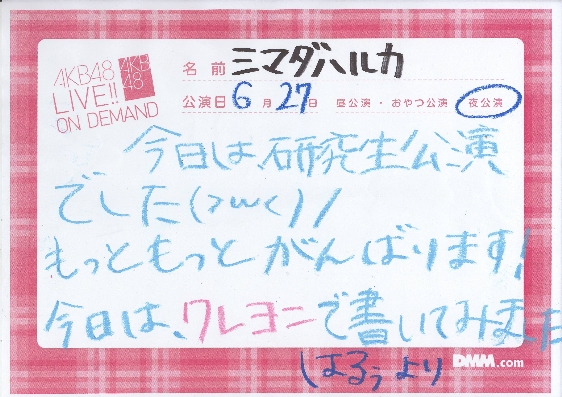 AKB48
LIVE!!
ON DEMAND
AKB
48
名前 ミマダハルカ
公演日 6月27日 昼公演・おやつ公演 夜公演
今日は、研究生公演
でした(>ω<)//
もっともっとがんばります!
今日は、クレヨンで書いてみました
はるぅより
DMM.com